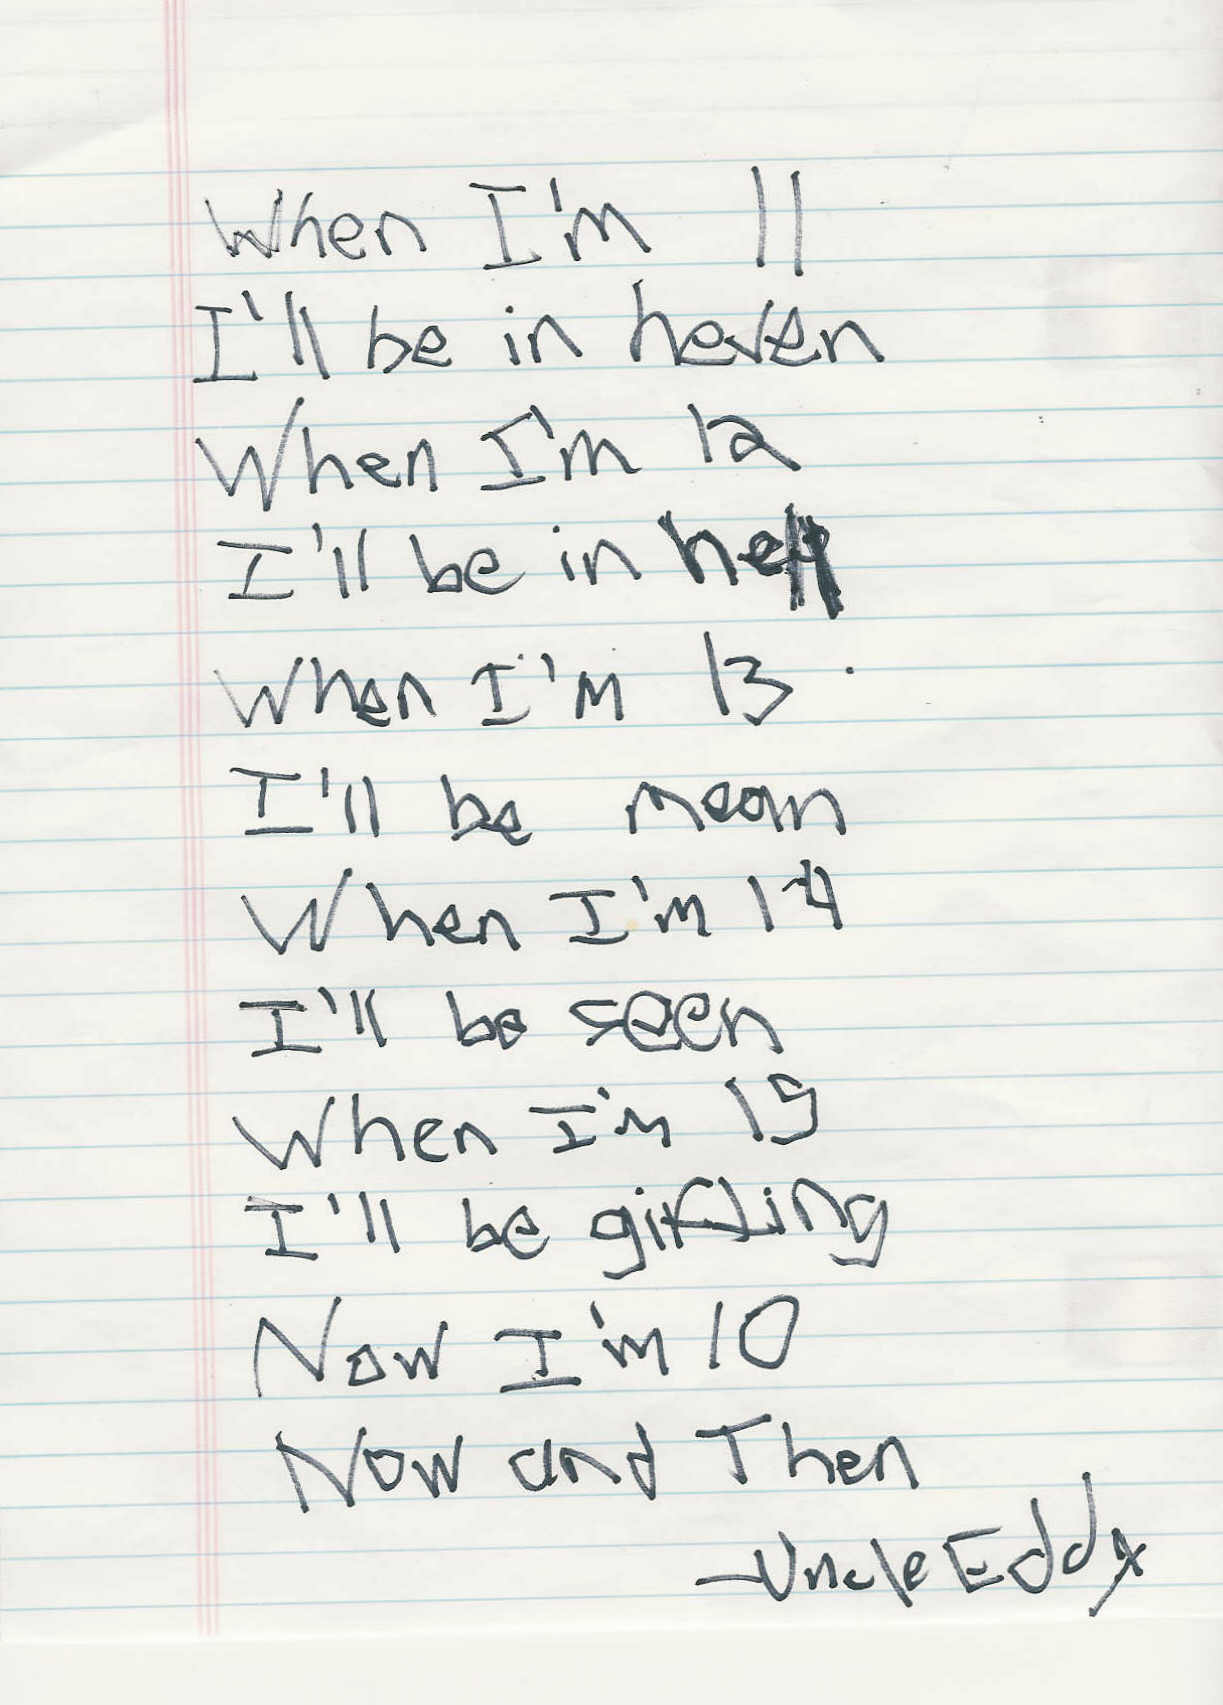 When I'm 11
I'll be in heven
When I'm 12
I'll be in hell
When I'm 13
I'll be mean
When I'm 14
I'll be seen
When I'm 15
I'll be
Now I'm 10
Now and Then
—Uncle Eddy